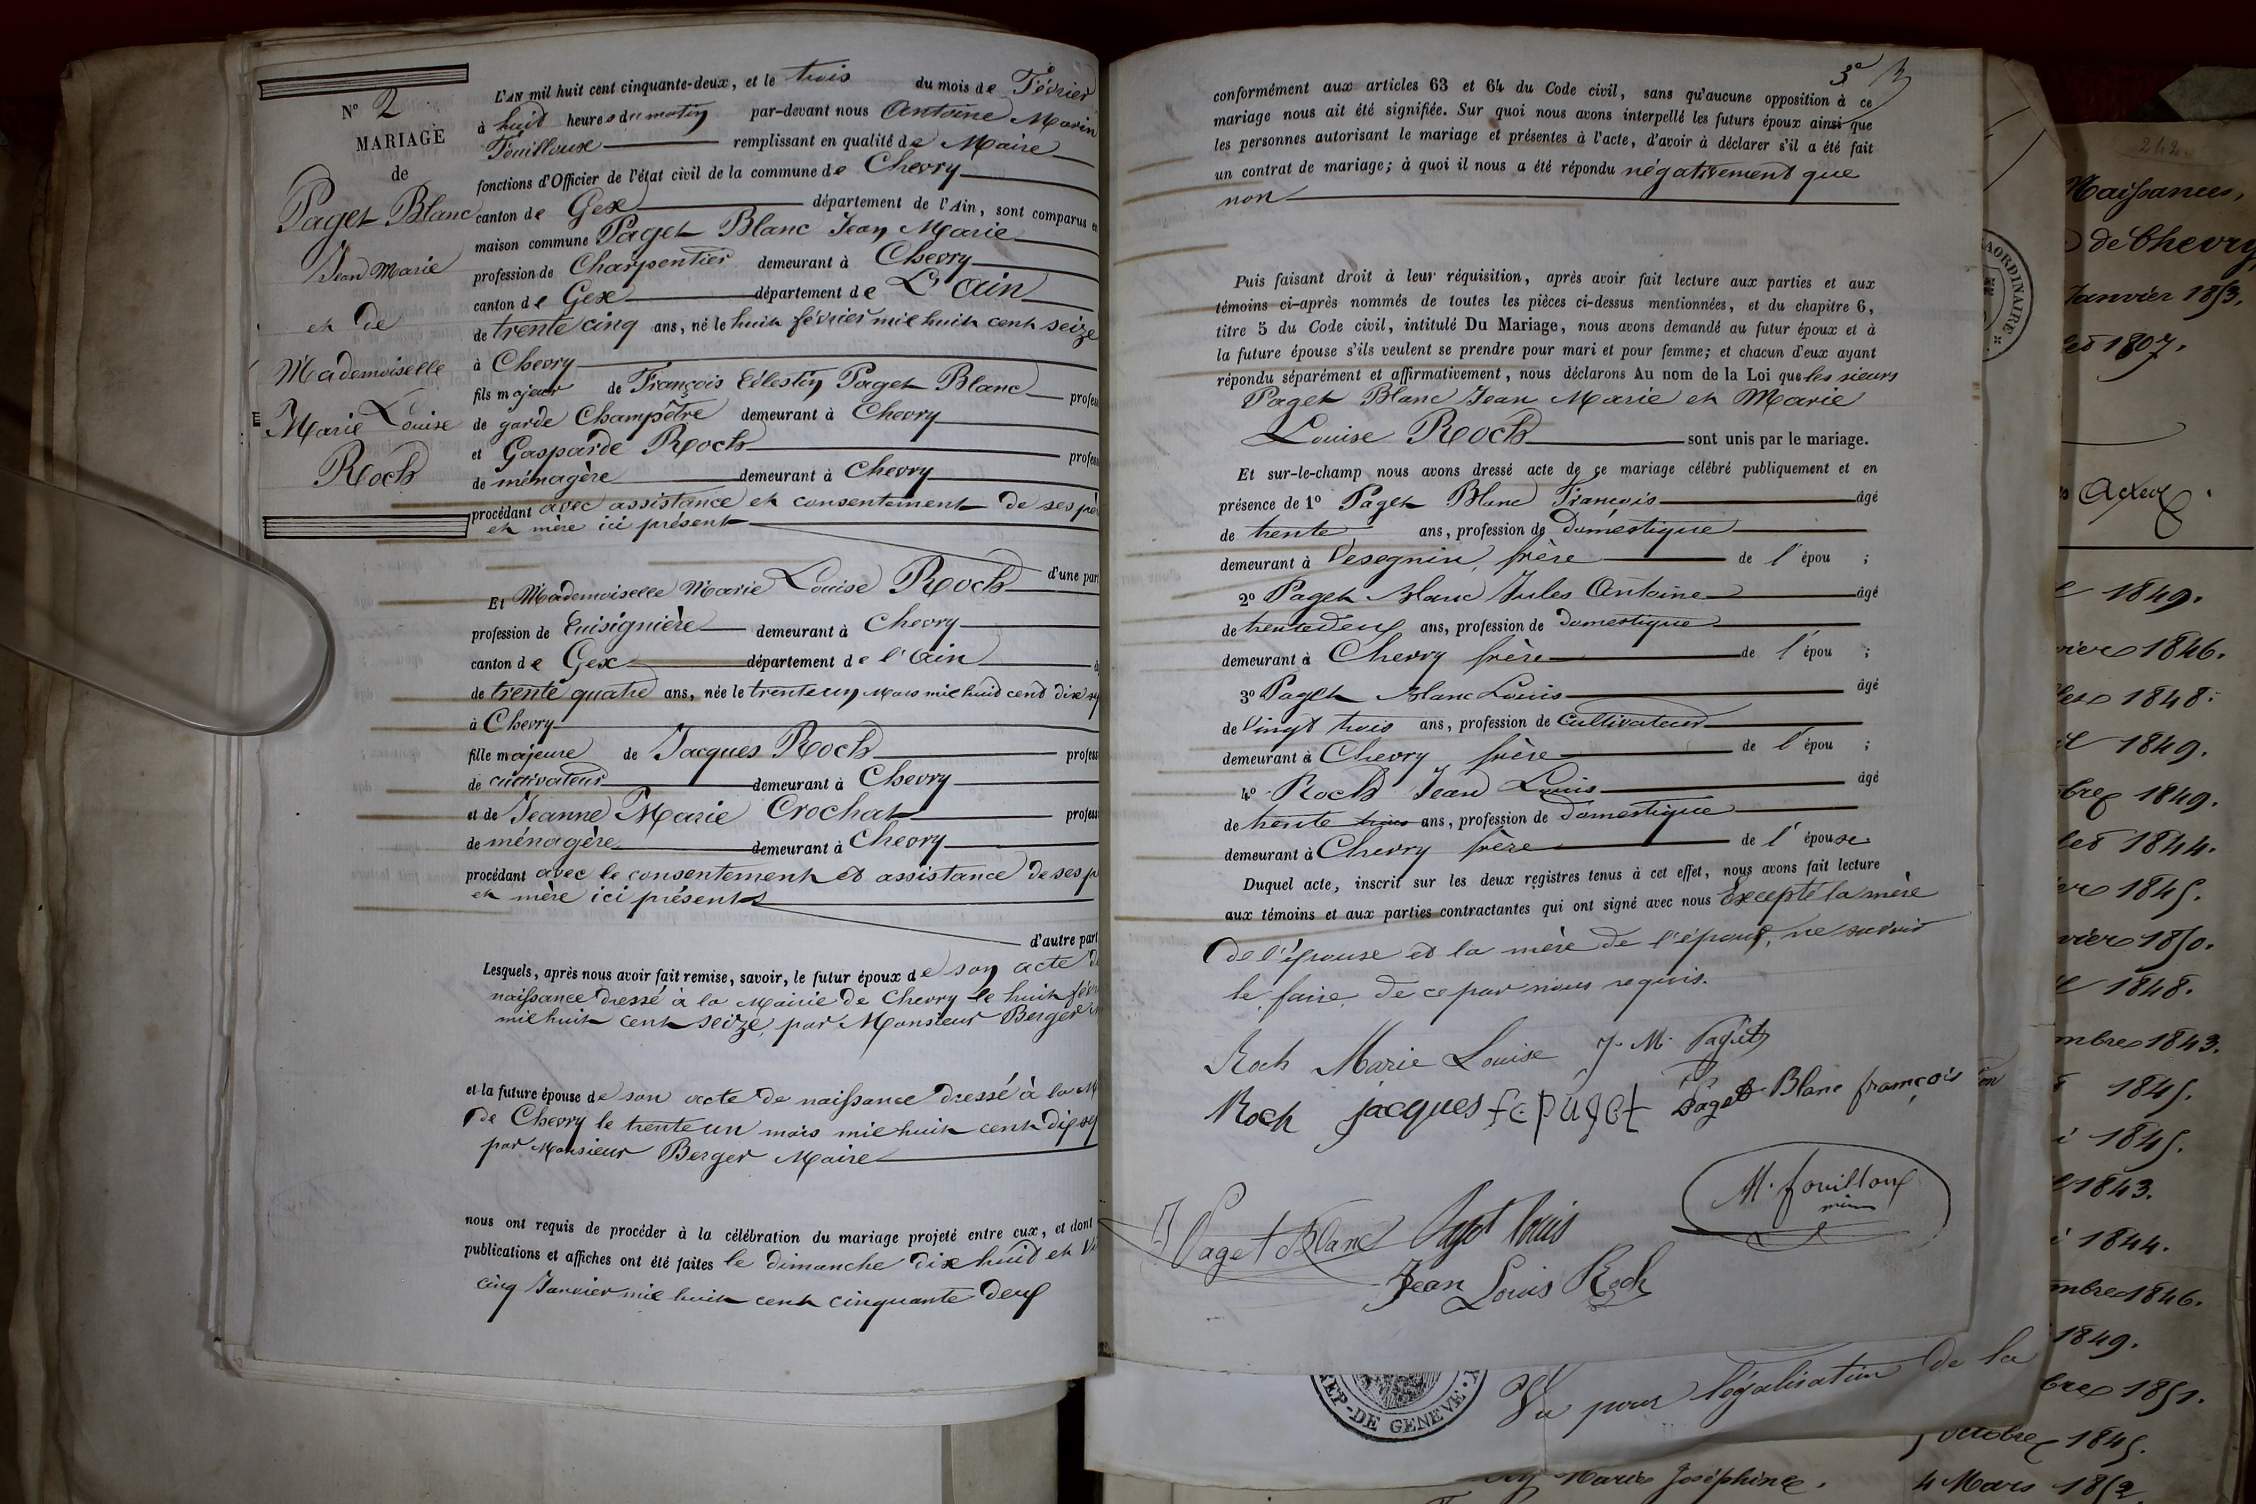 N° 2
MARIAGE
de
Paget Blanc
Jean Marie
et de
Mademoiselle
Marie Louise
Roch
L'AN mil huit cent cinquante-deux, et le trois du mois de Février
à huit heures du matin par-devant nous Antoine Marin
Fouilloux remplissant en qualité de Maire
fonctions d'Officier de l'état civil de la commune de Chevry
canton de Gex département de l'Ain, sont comparus en
maison commune Paget Blanc Jean Marie
profession de Charpentier demeurant à Chevry
canton de Gex département de L'Ain
de trente cinq ans, né le huit février mil huit cent seize
à Chevry
fils majeur de François Célestin Paget Blanc profess
de garde Champêtre demeurant à Chevry
et Gasparde Roch profess
de ménagère demeurant à Chevry
procédant avec assistance et consentement de ses pè
et mère ici présent
d'une part
Et Mademoiselle Marie Louise Roch
profession de Cuisignière demeurant à Chevry
canton de Gex département de l'Ain
de trente quatre ans, née le trente un Mars mil huit cent dix
à Chevry
fille majeure de Jacques Roch profess
de cultivateur demeurant à Chevry
et de Jeanne Marie Crochat profess
de ménagère demeurant à Chevry
procédant avec le consentement et assistance de ses p
et mère ici présents
d'autre part
Lesquels, après nous avoir fait remise, savoir, le futur époux de son acte de
naissance dressé à la Mairie de Chevry le huit févr
mil huit cent seize, par Monsieur Berger
et la future épouse de son acte de naissance dressé à la M
de Chevry le trente un mars mil huit cent dix
par Monsieur Berger Maire
nous ont requis de procéder à la célébration du mariage projeté entre eux, et dont
publications et affiches ont été faites le dimanche dix huit et Vi
cinq Janvier mil huit cent cinquante deux
3e
conformément aux articles 63 et 64 du Code civil, sans qu'aucune opposition à ce
mariage nous ait été signifiée. Sur quoi nous avons interpellé les futurs époux ainsi que
les personnes autorisant le mariage et présentes à l'acte, d'avoir à déclarer s'il a été fait
un contrat de mariage; à quoi il nous a été répondu négativement que
non
Puis faisant droit à leur réquisition, après avoir fait lecture aux parties et aux
témoins ci-après nommés de toutes les pièces ci-dessus mentionnées, et du chapitre 6,
titre 5 du Code civil, intitulé Du Mariage, nous avons demandé au futur époux et à
la future épouse s'ils veulent se prendre pour mari et pour femme; et chacun d'eux ayant
répondu séparément et affirmativement, nous déclarons Au nom de la Loi que les sieurs
Paget Blanc Jean Marie et Marie
Louise Roch sont unis par le mariage.
Et sur-le-champ nous avons dressé acte de ce mariage célébré publiquement et en
présence de 1° Paget Blanc François âgé
de trente ans, profession de Doméstique
demeurant à Vesegnin, frère de l'épou ;
2° Paget Blanc Jules Antoine âgé
de trente deux ans, profession de domestique
demeurant à Chevry frère de l'épou ;
3° Paget Blanc Louis âgé
de Vingt trois ans, profession de Cultivateur
demeurant à Chevry frère de l'épou ;
4° Roch Jean Louis âgé
de trente trois ans, profession de domestique
demeurant à Chevry frère de l'épouse
Duquel acte, inscrit sur les deux registres tenus à cet effet, nous avons fait lecture
aux témoins et aux parties contractantes qui ont signé avec nous Excepté la mère
de l'épouse et la mère de l'époux, ne savoir
le faire de ce par nous requis.
Roch Marie Louise J. M. Paget
Roch jacques fc paget Paget Blanc françois
Paget Blanc Paget louis M. fouilloux
Jean Louis Roch
AORDINAIRE
REP. DE GENEVE.
Vu pour légalisation de la
Marie Joséphine. 4 Mars 1852
242
Naissances,
de Chevry
Janvier 1853.
1807.
Actes
1849.
1846.
1848.
1849.
1849.
1844.
1845.
1850.
1848.
mbre 1843.
1845.
1845.
1843.
1844.
mbre 1846.
1849.
bre 1851.
octobre 1845.